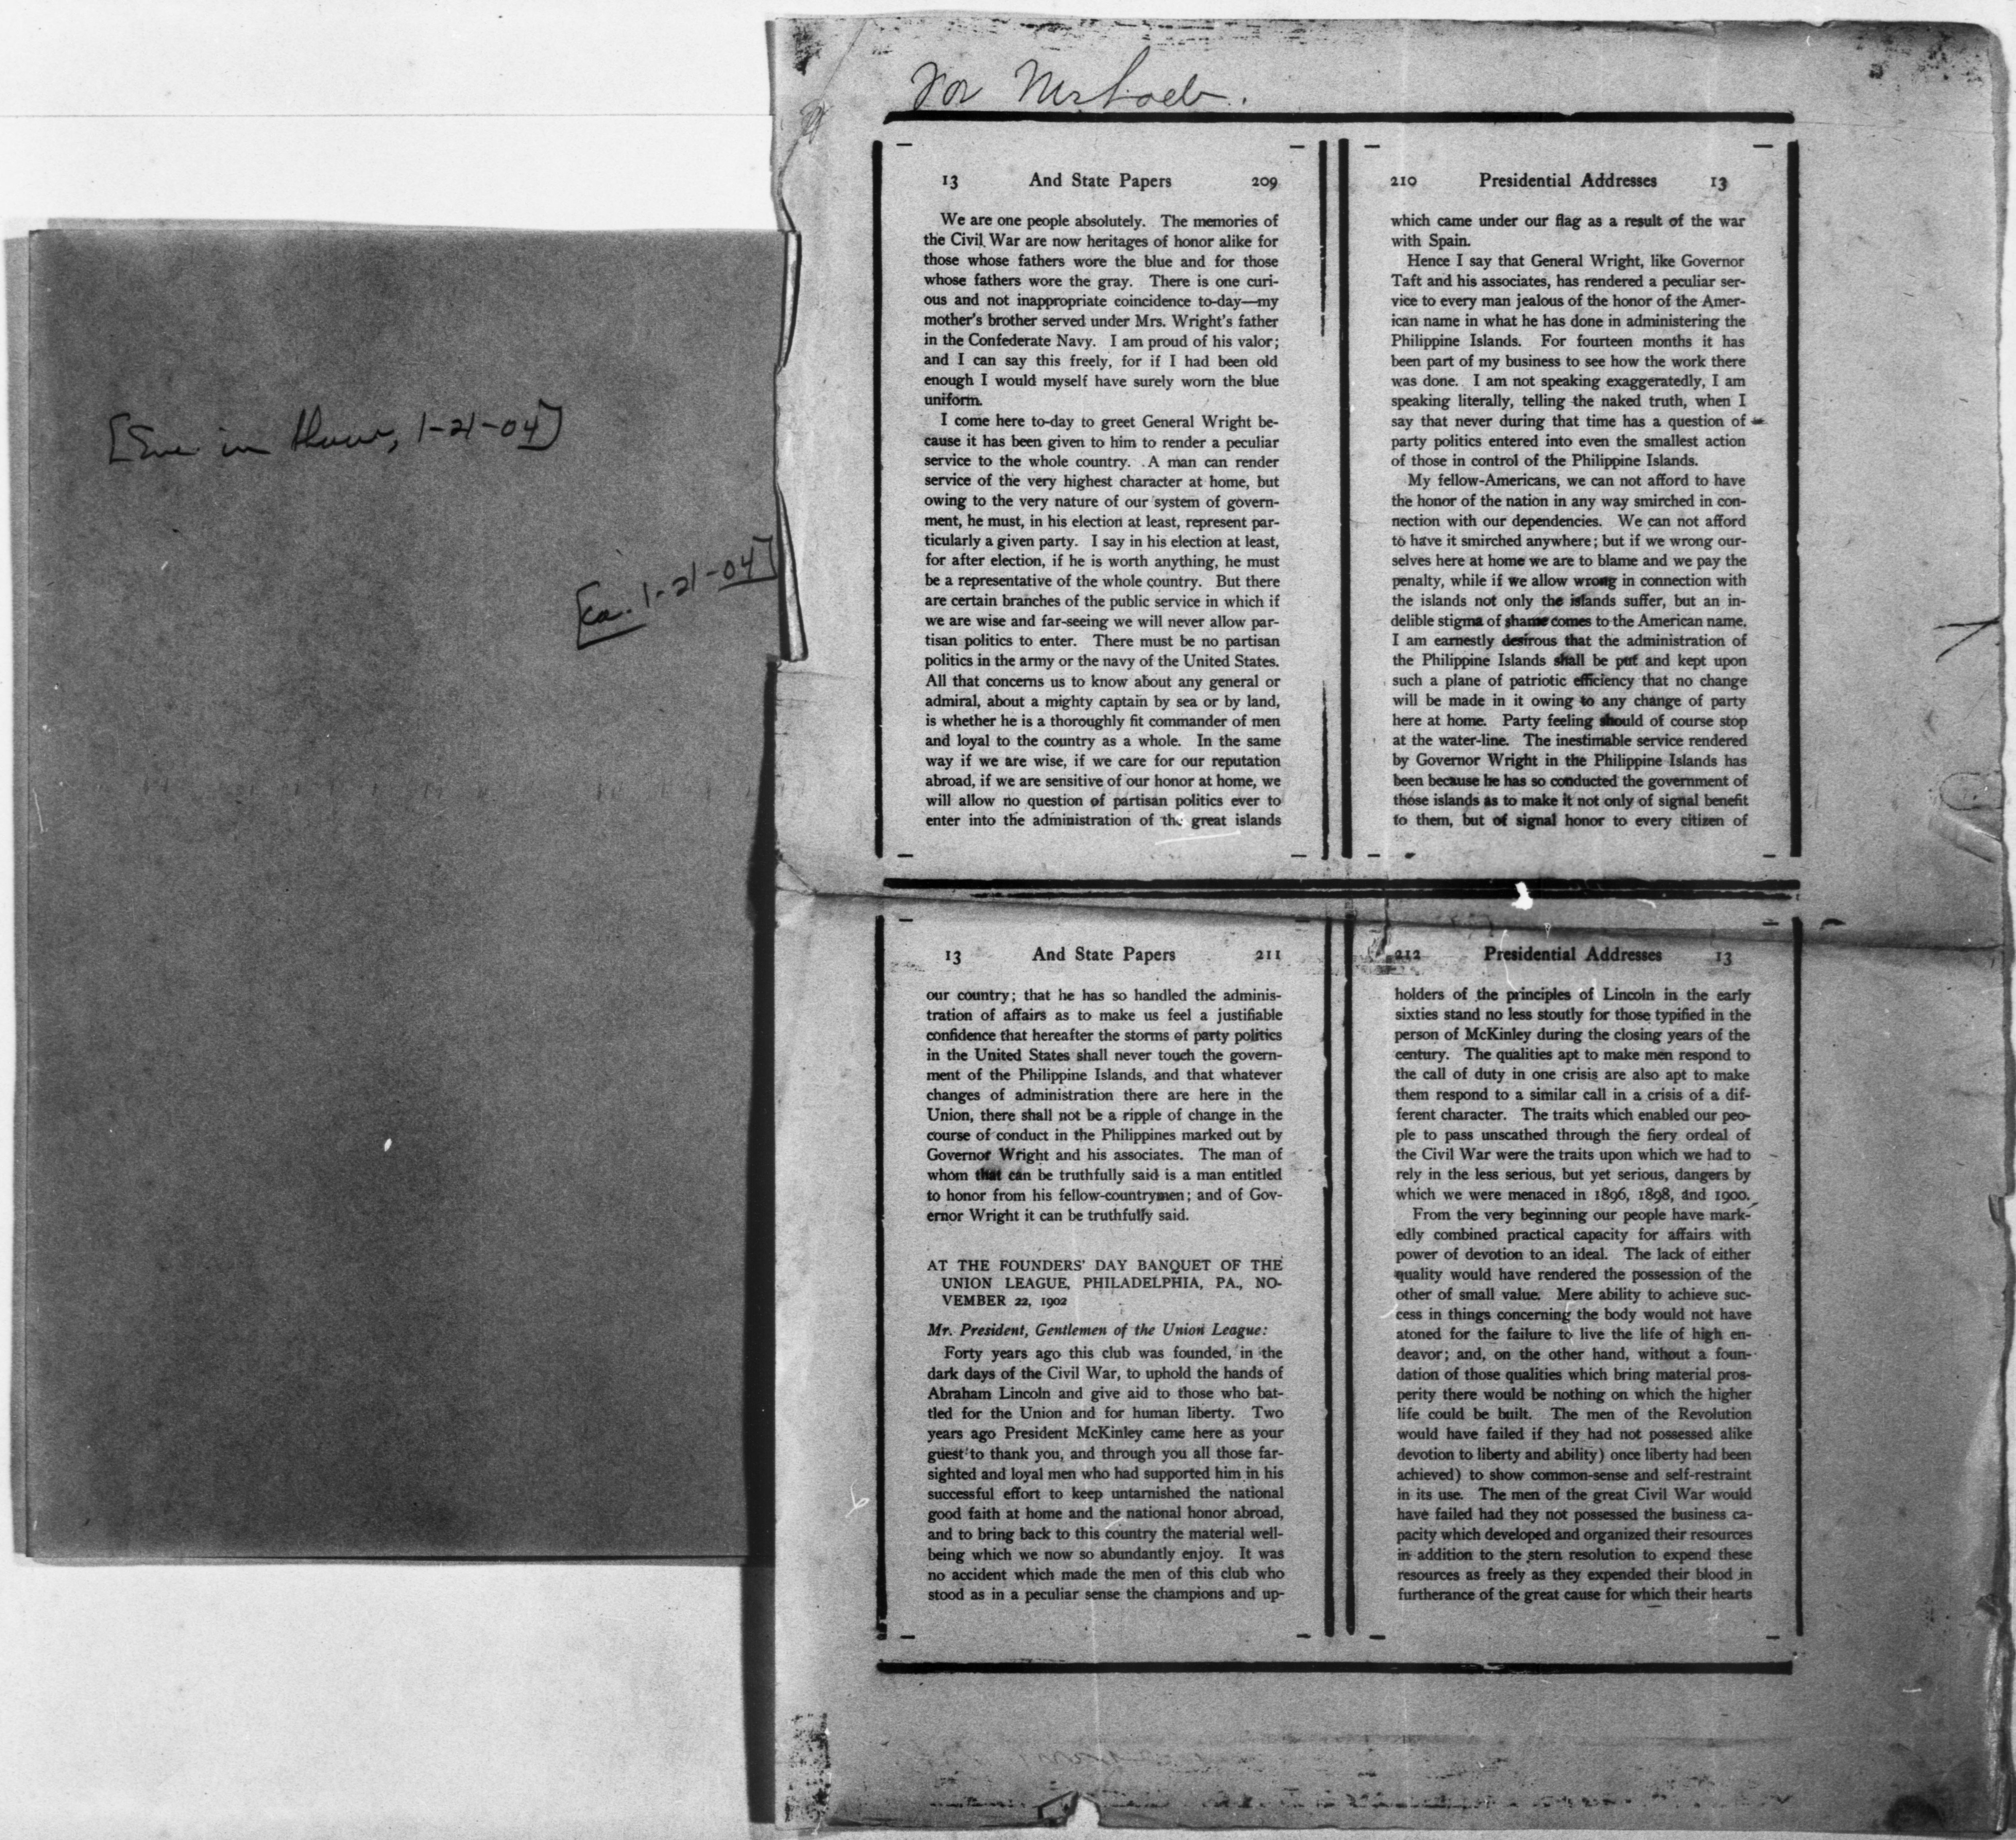 [Enc in Shaw, 1-21-04]
[ca. 1-21-04]
For Mr Loeb.
13 And State Papers 209
We are one people absolutely. The memories of
the Civil War are now heritages of honor alike for
those whose fathers wore the blue and for those
whose fathers wore the gray. There is one curi-
ous and not inappropriate coincidence to-day—my
mother's brother served under Mrs. Wright's father
in the Confederate Navy. I am proud of his valor;
and I can say this freely, for if I had been old
enough I would myself have surely worn the blue
uniform.
I come here to-day to greet General Wright be-
cause it has been given to him to render a peculiar
service to the whole country. A man can render
service of the very highest character at home, but
owing to the very nature of our system of govern-
ment, he must, in his election at least, represent par-
ticularly a given party. I say in his election at least,
for after election, if he is worth anything, he must
be a representative of the whole country. But there
are certain branches of the public service in which if
we are wise and far-seeing we will never allow par-
tisan politics to enter. There must be no partisan
politics in the army or the navy of the United States.
All that concerns us to know about any general or
admiral, about a mighty captain by sea or by land,
is whether he is a thoroughly fit commander of men
and loyal to the country as a whole. In the same
way if we are wise, if we care for our reputation
abroad, if we are sensitive of our honor at home, we
will allow no question of partisan politics ever to
enter into the administration of the great islands
210 Presidential Addresses 13
which came under our flag as a result of the war
with Spain.
Hence I say that General Wright, like Governor
Taft and his associates, has rendered a peculiar ser-
vice to every man jealous of the honor of the Amer-
ican name in what he has done in administering the
Philippine Islands. For fourteen months it has
been part of my business to see how the work there
was done. I am not speaking exaggeratedly, I am
speaking literally, telling the naked truth, when I
say that never during that time has a question of
party politics entered into even the smallest action
of those in control of the Philippine Islands.
My fellow-Americans, we can not afford to have
the honor of the nation in any way smirched in con-
nection with our dependencies. We can not afford
to have it smirched anywhere; but if we wrong our-
selves here at home we are to blame and we pay the
penalty, while if we allow wrong in connection with
the islands not only the islands suffer, but an in-
delible stigma of shame comes to the American name.
I am earnestly desirous that the administration of
the Philippine Islands shall be put and kept upon
such a plane of patriotic efficiency that no change
will be made in it owing to any change of party
here at home. Party feeling should of course stop
at the water-line. The inestimable service rendered
by Governor Wright in the Philippine Islands has
been because he has so conducted the government of
those islands as to make it not only of signal benefit
to them, but of signal honor to every citizen of
13 And State Papers 211
our country; that he has so handled the adminis-
tration of affairs as to make us feel a justifiable
confidence that hereafter the storms of party politics
in the United States shall never touch the govern-
ment of the Philippine Islands, and that whatever
changes of administration there are here in the
Union, there shall not be a ripple of change in the
course of conduct in the Philippines marked out by
Governor Wright and his associates. The man of
whom that can be truthfully said is a man entitled
to honor from his fellow-countrymen; and of Gov-
ernor Wright it can be truthfully said.
AT THE FOUNDERS' DAY BANQUET OF THE
UNION LEAGUE, PHILADELPHIA, PA., NO-
VEMBER 22, 1902
Mr. President, Gentlemen of the Union League:
Forty years ago this club was founded, in the
dark days of the Civil War, to uphold the hands of
Abraham Lincoln and give aid to those who bat-
tled for the Union and for human liberty. Two
years ago President McKinley came here as your
guest to thank you, and through you all those far-
sighted and loyal men who had supported him in his
successful effort to keep untarnished the national
good faith at home and the national honor abroad,
and to bring back to this country the material well-
being which we now so abundantly enjoy. It was
no accident which made the men of this club who
stood as in a peculiar sense the champions and up-
212 Presidential Addresses 13
holders of the principles of Lincoln in the early
sixties stand no less stoutly for those typified in the
person of McKinley during the closing years of the
century. The qualities apt to make men respond to
the call of duty in one crisis are also apt to make
them respond to a similar call in a crisis of a dif-
ferent character. The traits which enabled our peo-
ple to pass unscathed through the fiery ordeal of
the Civil War were the traits upon which we had to
rely in the less serious, but yet serious, dangers by
which we were menaced in 1896, 1898, and 1900.
From the very beginning our people have mark-
edly combined practical capacity for affairs with
power of devotion to an ideal. The lack of either
quality would have rendered the possession of the
other of small value. Mere ability to achieve suc-
cess in things concerning the body would not have
atoned for the failure to live the life of high en-
deavor; and, on the other hand, without a foun-
dation of those qualities which bring material pros-
perity there would be nothing on which the higher
life could be built. The men of the Revolution
would have failed if they had not possessed alike
devotion to liberty and ability) once liberty had been
achieved) to show common-sense and self-restraint
in its use. The men of the great Civil War would
have failed had they not possessed the business ca-
pacity which developed and organized their resources
in addition to the stern resolution to expend these
resources as freely as they expended their blood in
furtherance of the great cause for which their hearts